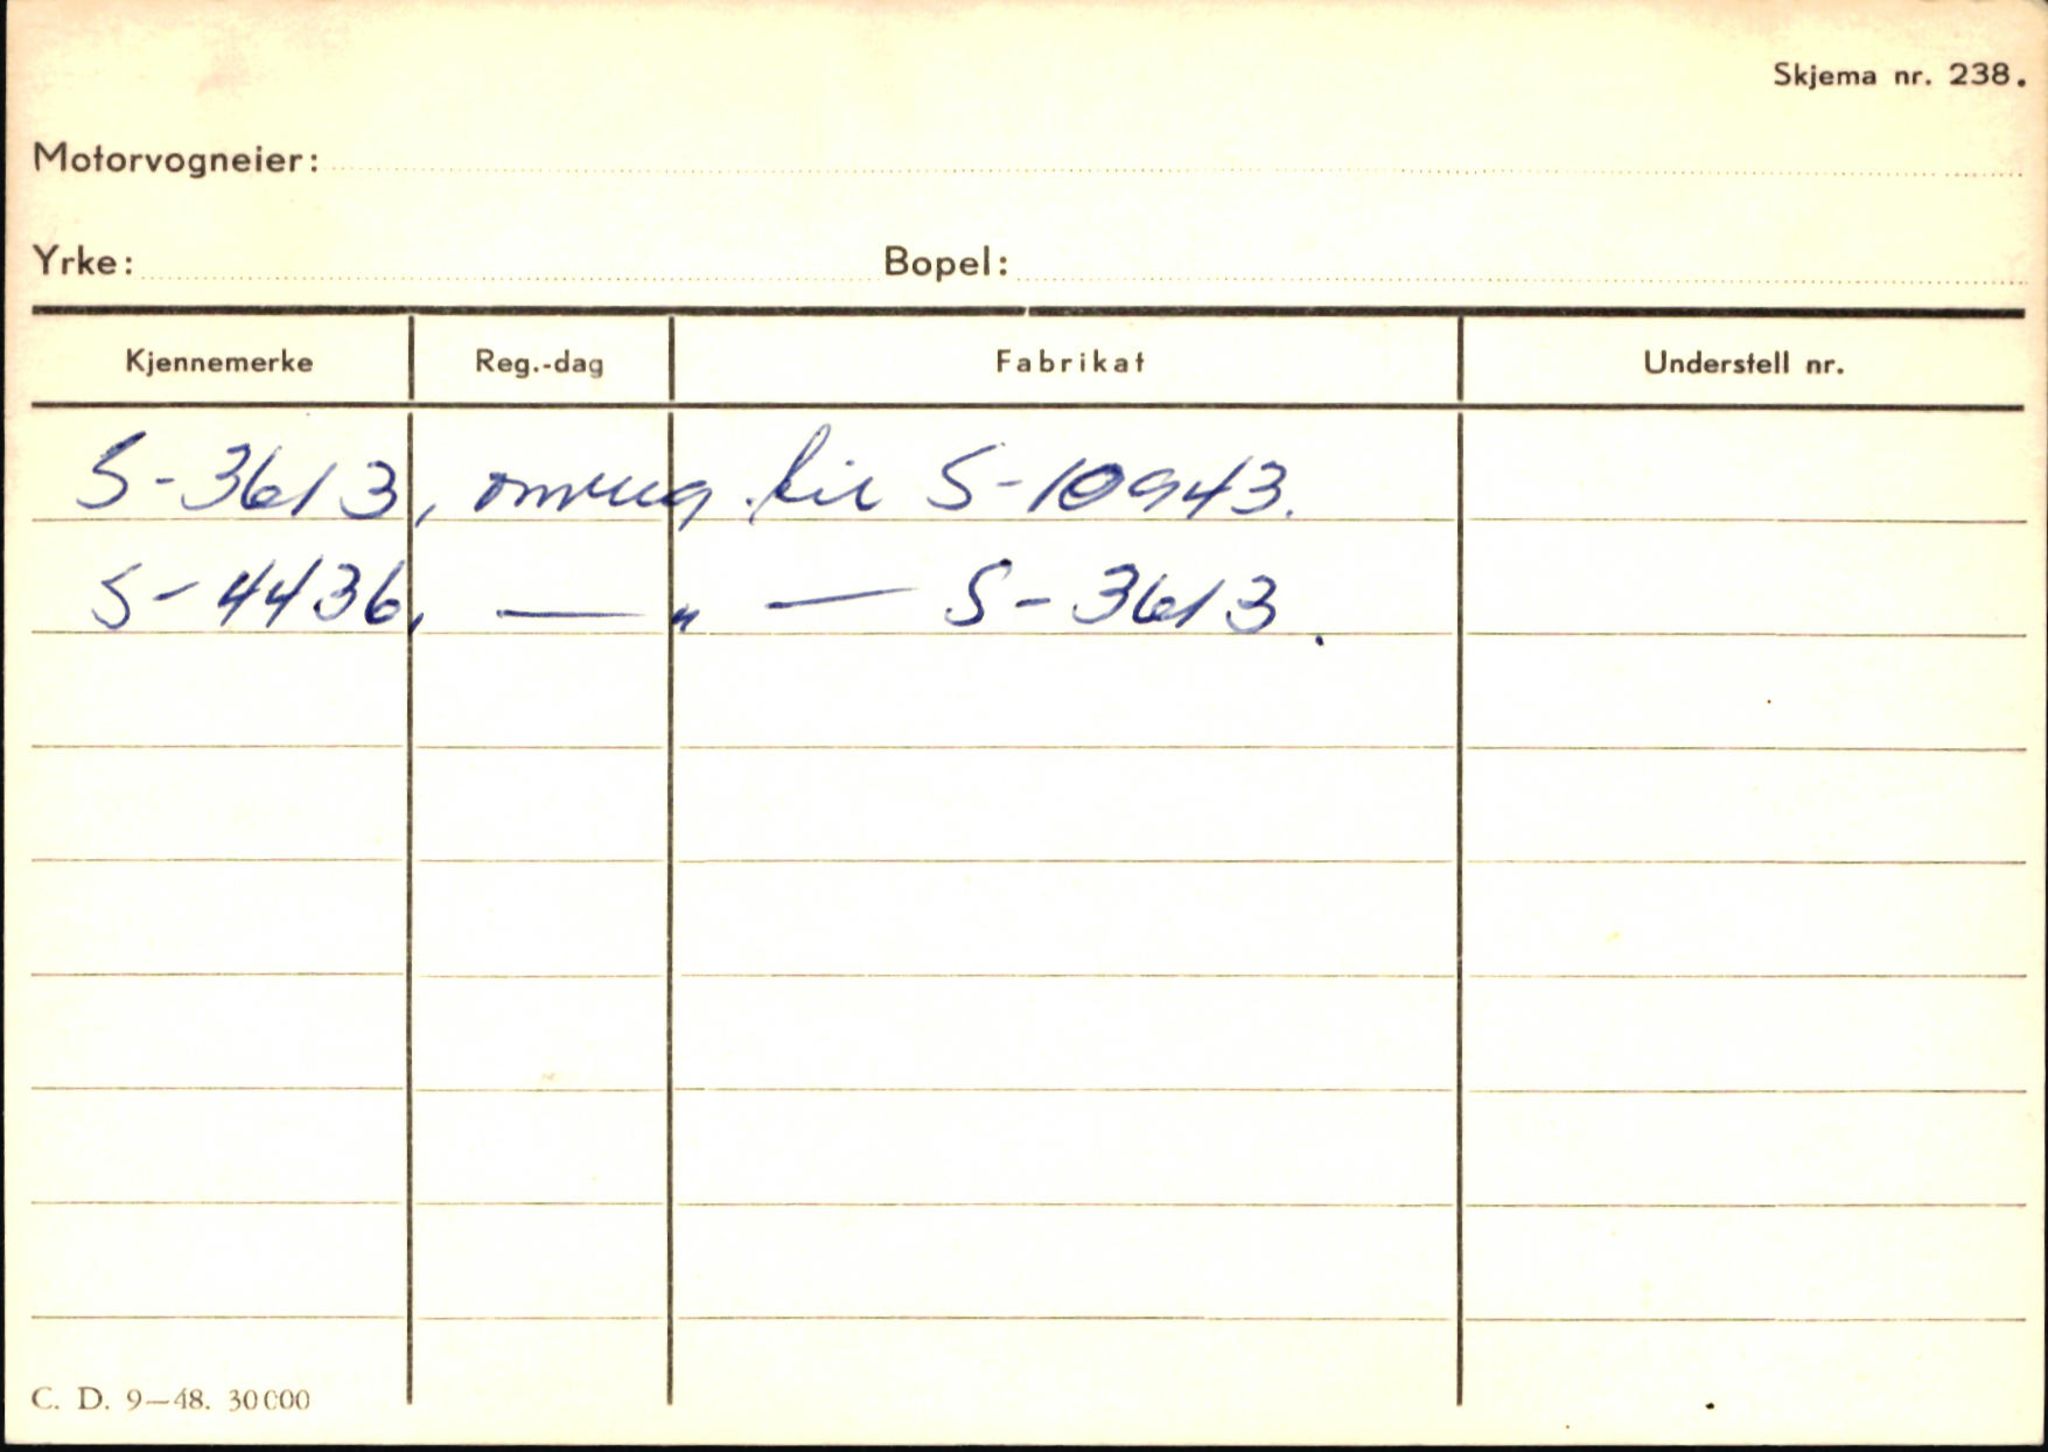 Skjema nr. 238.
Motorvogneier:
Yrke: Bopel:
Kjennemerke Reg.-dag Fabrikat Understell nr.
S-3613, omreg. til S-10943.
S-4436, — „ — S-3613.
C. D. 9—48. 30000